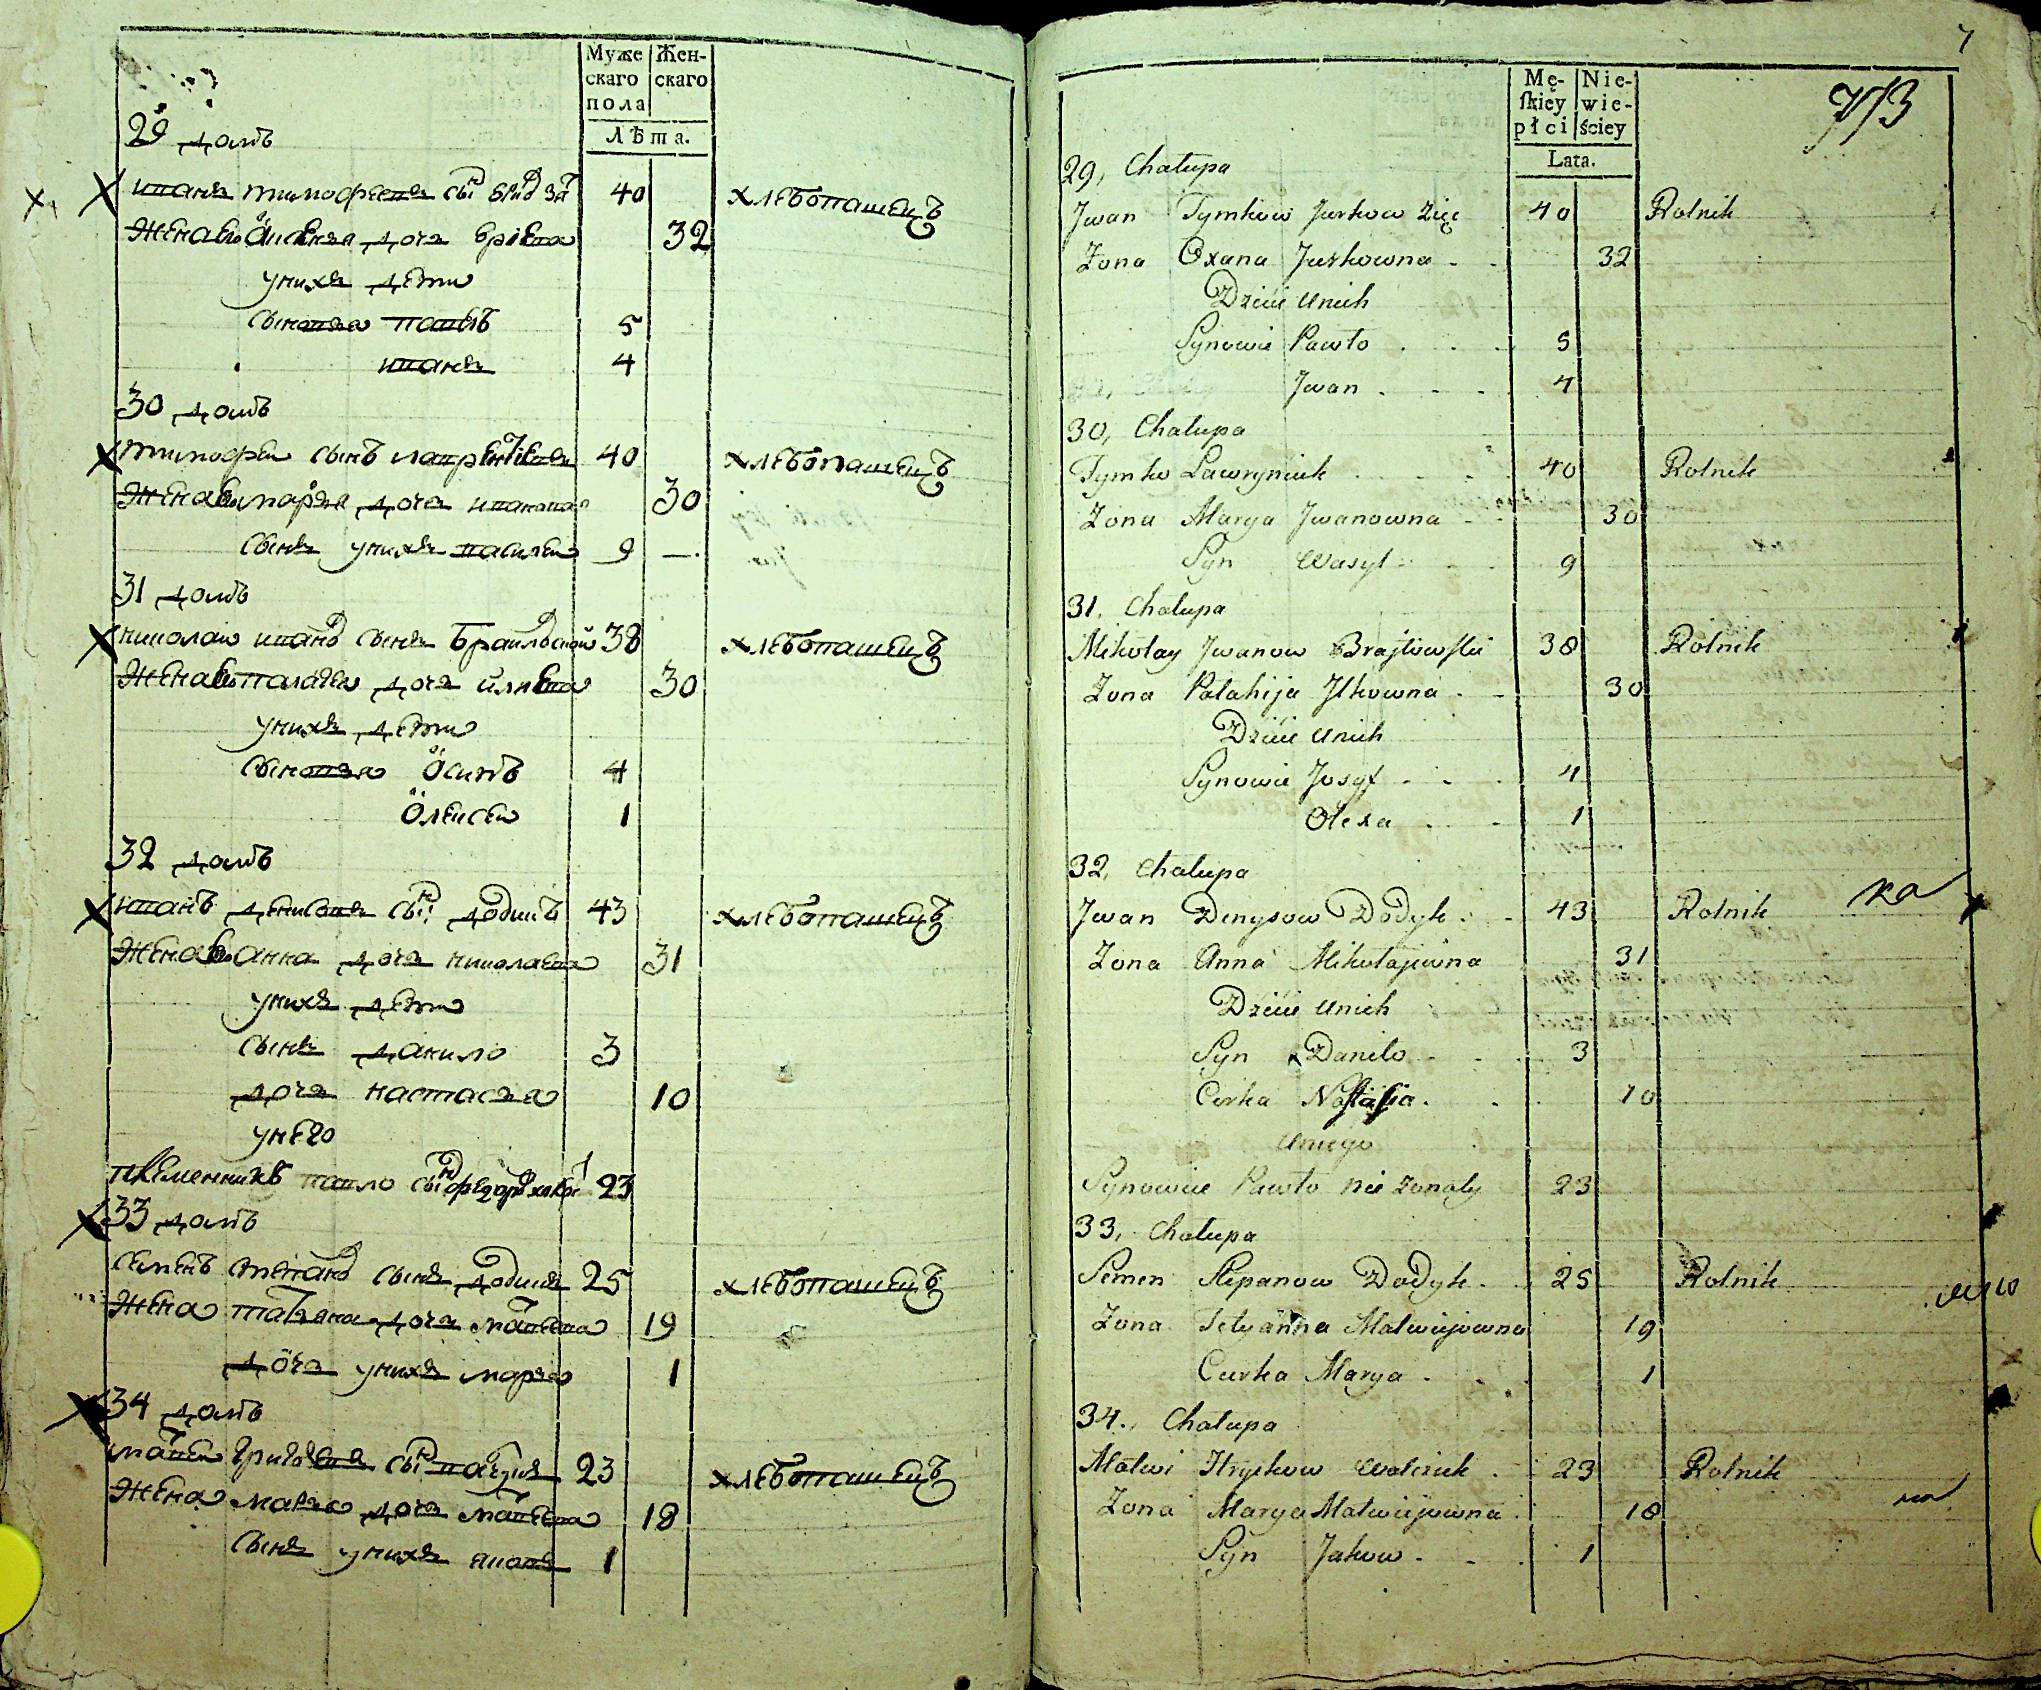 Муже
скаго
пола
Жен-
скаго
Лѣта.
29 домъ
иванъ тимофеевъ сы 40 хлебопашецъ
жена ево доч 32
у них дети
сыновя павелъ 5
иванъ 4
30 домъ
тимофеи сынъ 40 хлебопашецъ
жена ево маря доч иванова 30
сынъ у нихъ василеи 9 —
31 домъ
николаи иванов сынъ Браиловский 38 хлебопашецъ
жена ево палагея доч илиева 30
у нихъ дети
сыновя осипъ 4
олексеи 1
32 домъ
иванъ денисовъ сы додикъ 43 хлебопашецъ
жена ево анна доч николаева 31
у нихъ дети
сынъ данило 3
доч настася 10
у него
племенникъ павло 23
33 домъ
семенъ степанов сынъ додикъ 25 хлебопашецъ
жена татяна доч матвеева 19
доч у нихъ маря 1
34 домъ
матвеи григорев сы 23 хлебопашецъ
жена маря доч матвеева 18
сынъ у нихъ яков 1
7
773
Mę-
skiey
płci
Nie-
wie-
ściey
Lata.
29, Chałupa
Jwan Tymkow Jurkow Zięc 40 Rolnik
Zona Oxana Jurkowna 32
Dzieci unich
Synowie Pawło 5
Jwan 4
30, Chałupa
Tymko Ławryniuk 40 Rolnik
Zona Marya Jwanowna 30
Syn Wasyl 9
31. Chałupa
Mikołay Jwanow Brajłowski 38 Rolnik
Zona Palahija Jlkowna 30
Dzieci unich
Synowie Josyf 4
Olexa 1
32, Chałupa
Jwan Denysow Dodyk 43 Rolnik
Zona Anna Mikołajowna 31
Dzieci unich
Syn Daniło 3
Curka Nastasia 10
uniego
Synowiec Pawło nie zonaty 23
33, Chałupa
Semen Stepanow Dodyk 25 Rolnik
Zona Tetyanna Matwiejowna 19
Curka Marya 1
34., Chałupa
Matwi Hryckow 23 Rolnik
Zona Marya Matwiejowna 18
Syn Jakow 1